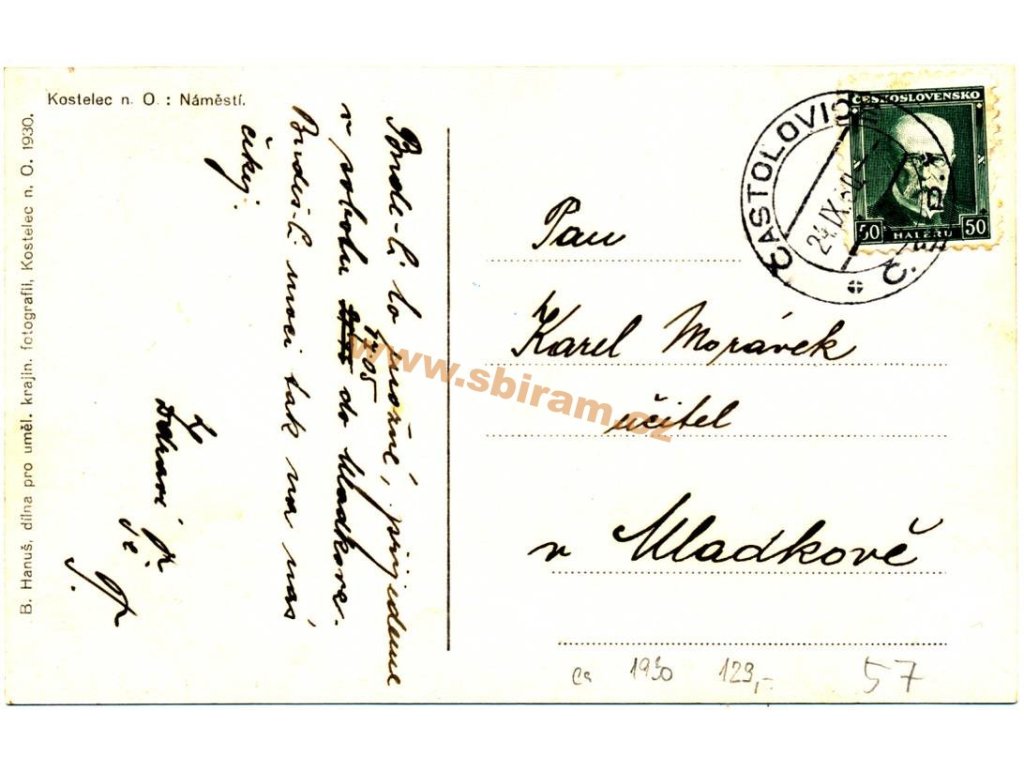 Kostelec n. O.: Náměstí.
B. Hanuš, dílna pro uměl. krajin. fotografii, Kostelec n. O. 1930.
Bude-li to možné, přijedeme
v sobotu 17.05 do Mladkova.
Budeš-li moci tak na nás
čekej.
Zdraví
ČASTOLOVICE
24.IX.30
ČESKOSLOVENSKO
50 HALÉŘŮ 50
Pan
Karel Morávek
učitel
v Mladkově
ca 1930 129,- 57
www.sbiram.cz